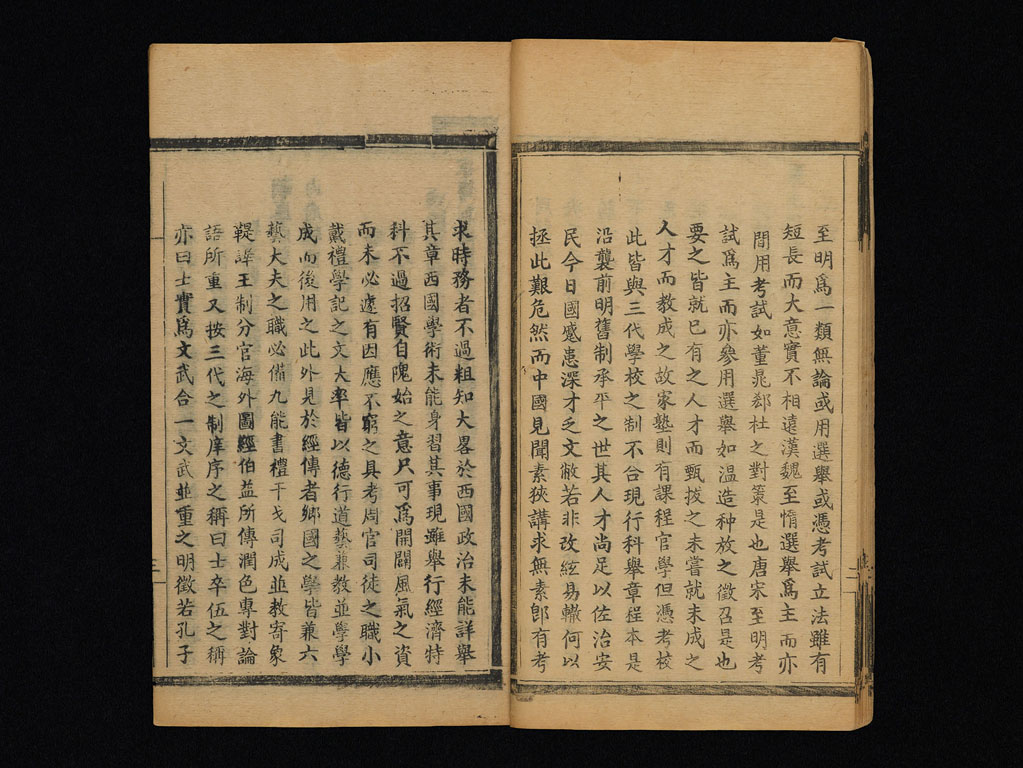 至明爲一類無論或用選舉或憑考試立法雖有
短長而大意實不相遠漢魏至惰選舉爲主而亦
間用考試如董晁郄杜之對策是也唐宋至明考
試爲主而亦參用選舉如溫造种放之徵召是也
要之皆就已有之人才而甄拔之未嘗就未成之
人才而教成之故家塾則有課程官學但憑考校
此皆與三代學校之制不合現行科舉章程本是
沿襲前明舊制承平之世其人才尚足以佐治安
民今日國蹙患深才乏文敝若非改絃易轍何以
拯此艱危然而中國見聞素狹講求無素卽有考
二
求時務者不過粗知大畧於西國政治未能詳舉
其章西國學術未能身習其事現雖舉行經濟特
科不過招賢自隗始之意只可爲開闢風氣之資
而未必遽有因應不窮之具考周官司徒之職小
戴禮學記之文大率皆以德行道藝兼教並學學
成而後用之此外見於經傳者鄉國之學皆兼六
藝大夫之職必備九能書禮干戈司成並教寄象
鞮譯王制分官海外圖經伯益所傳潤色專對論
語所重又按三代之制庠序之稱曰士卒伍之稱
亦曰士實爲文武合一文武並重之明徵若孔子
三